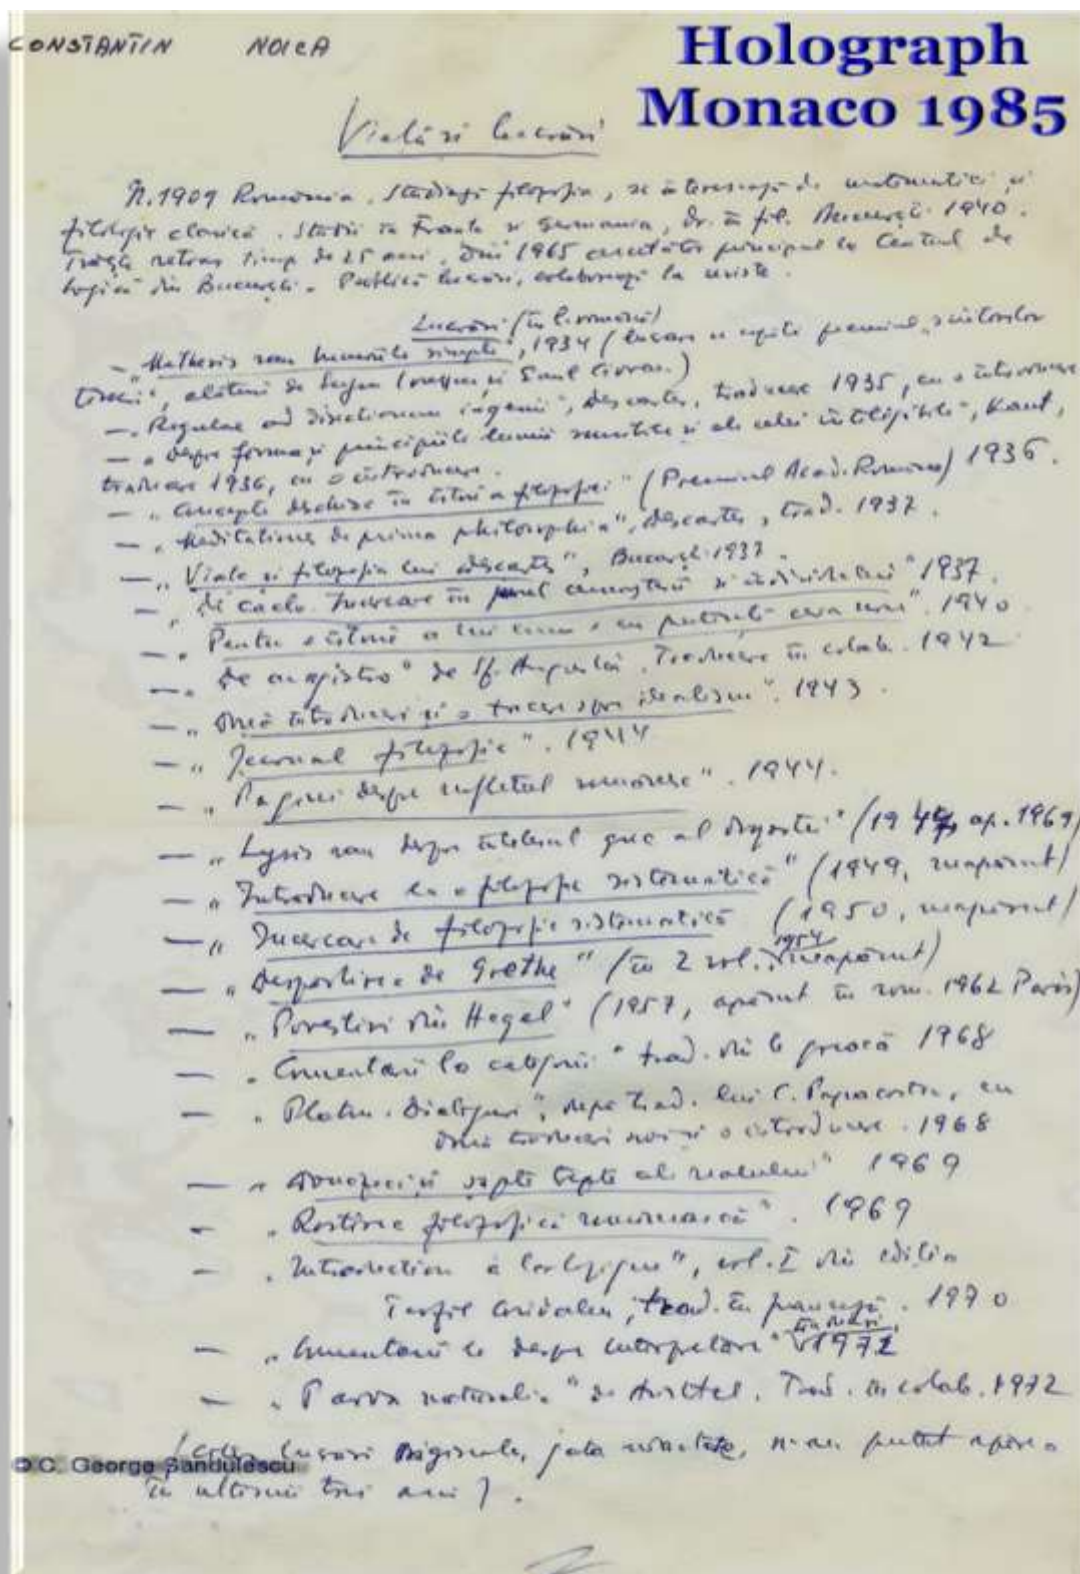 CONSTANTIN NOICA
Holograph
Monaco 1985
Viață și lucrări
N. 1909 România. Studiază filozofia, se interesează de matematici și
filologie clasică. Studii în Franța și Germania, dr. în fil. București 1940.
Trăiește retras timp de 15 ani. Din 1965 cercetător principal la Centrul de
Logică din București. Publică lucrări, colaborează la reviste.
Lucrări (în l. română)
— „Mathesis sau bucuriile simple", 1934 (lucrare ce capătă premiul „scriitorilor
tineri", alături de Eugen Ionescu și Emil Cioran.)
— „Regulae ad directionem ingenii", Descartes, traducere 1935, cu o introducere
— „Despre forma și principiile lumii sensibile și ale celei inteligibile", Kant,
traducere 1936, cu o introducere.
— „Concepte deschise în istoria filozofiei" (Premiul Acad. Române) 1936.
— „Meditationes de prima philosophia", Descartes, trad. 1937.
— „Viața și filozofia lui Descartes", București 1937.
— „De caelo. Încercare în jurul cunoașterii și individului" 1937.
— „Pentru o istorie a lui cum e cu putință ceva nou". 1940
— „De magistro" de Sf. Augustin. Traducere în colab. 1942
— „Două introduceri și o trecere spre idealism". 1943.
— „Jurnal filozofic". 1944
— „Pagini despre sufletul românesc". 1944.
— „Lysis sau despre înțelesul grec al dragostei" (19 ap. 1969)
— „Introducere la o filozofie sistematică" (1949, neapărut)
— „Încercare de filozofie sistematică (1950, neapărut)
— „Despărțirea de Goethe" (în 2 vol. 1954 neapărut)
— „Povestiri din Hegel" (1957, apărut în rom. 1962 Paris)
— „Comentarii la categorii" trad. din l. greacă 1968
— „Platon. Dialoguri", după trad. lui C. Papacostea, cu
două traduceri noi și o introducere. 1968
— „Douăzeci și șapte trepte ale realului" 1969
— „Rostirea filozofică românească". 1969
— „Introduction à", vol. I din ediția
Teofil Coridaleu, trad. în franceză. 1970
— „Comentarii la despre interpretare" 1972
— „Parva naturalia" de Aristotel. Trad. în colab. 1972
lucrări originale, gata, n-au putut apărea
în ultimii trei ani).
© C. George Sandulescu